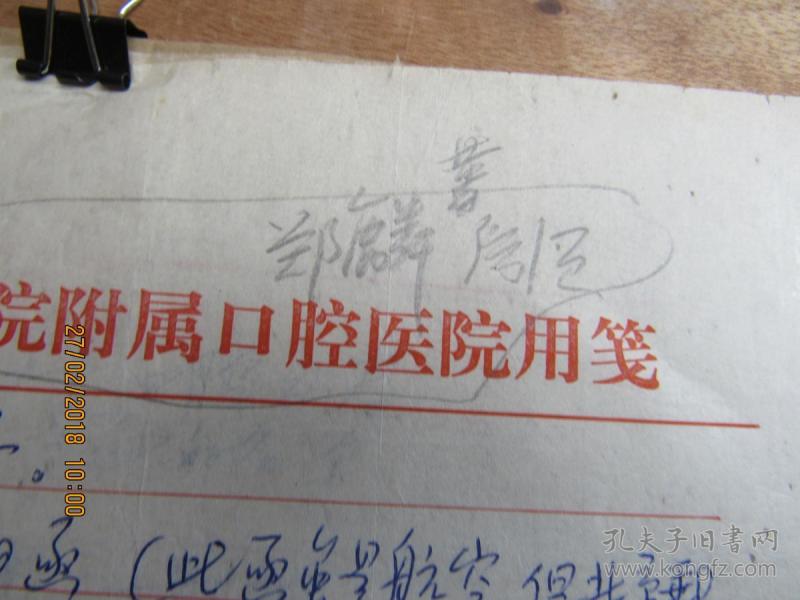 郑麟蕃
院附属口腔医院用笺
。
函(此函虽是航空 但
27/02/2018 10:00
孔夫子旧书网
www.kongfz.com